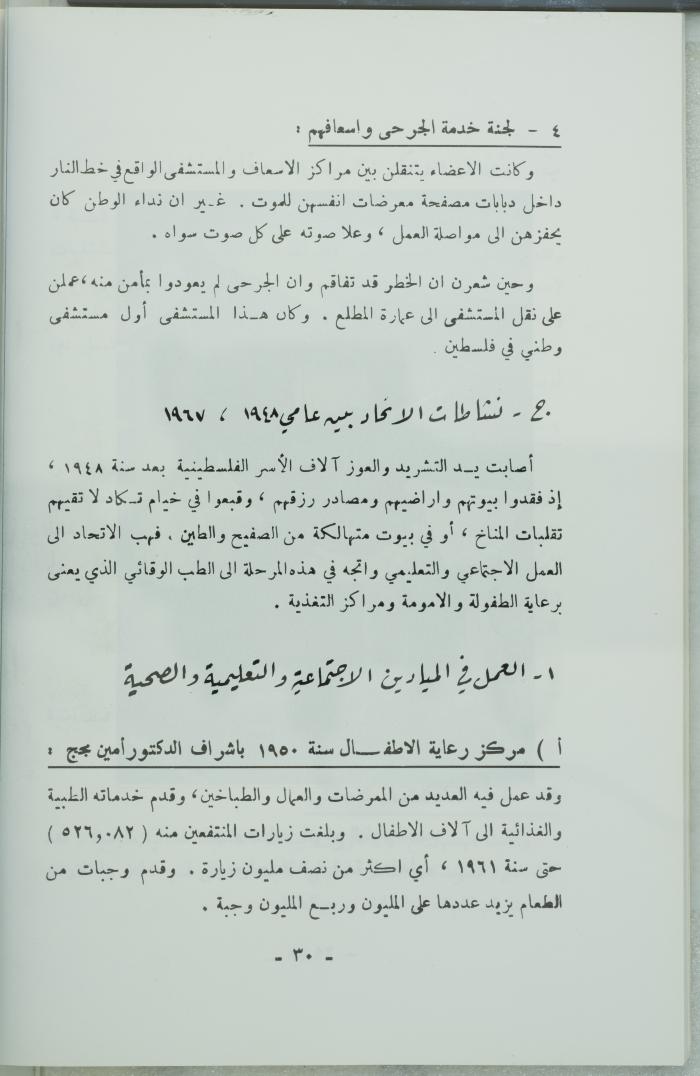 ٤ - لجنة خدمة الجرحى واسعافهم :
وكانت الاعضاء يتنقلن بين مراكز الاسعاف والمستشفى الواقع في خط النار
داخل دبابات مصفحة معرضات انفسهن للموت . غير ان نداء الوطن كان
يحفزهن الى مواصلة العمل ، وعلا صوته على كل صوت سواه .
وحين شعرن ان الخطر قد تفاقم وان الجرحى لم يعودوا بمأمن منه ، عملن
على نقل المستشفى الى عمارة المطلع . وكان هذا المستشفى أول مستشفى
وطني في فلسطين .
ج - نشاطات الاتحاد بين عامي ١٩٤٨ ، ١٩٦٧
أصابت يد التشريد والعوز آلاف الأسر الفلسطينية بعد سنة ١٩٤٨ ،
إذ فقدوا بيوتهم واراضيهم ومصادر رزقهم ، وقبعوا في خيام تكاد لا تقيهم
تقلبات المناخ ، أو في بيوت متهالكة من الصفيح والطين . فهب الاتحاد الى
العمل الاجتماعي والتعليمي واتجه في هذه المرحلة الى الطب الوقائي الذي يعنى
برعاية الطفولة والامومة ومراكز التغذية .
١ - العمل في الميادين الاجتماعية والتعليمية والصحية
أ ) مركز رعاية الاطفال سنة ١٩٥٠ باشراف الدكتور أمين مججج :
وقد عمل فيه العديد من الممرضات والعمال والطباخين ، وقدم خدماته الطبية
والغذائية الى آلاف الاطفال . وبلغت زيارات المنتفعين منه ( ٥٢٦,٠٨٢ )
حتى سنة ١٩٦١ ، أي اكثر من نصف مليون زيارة . وقدم وجبات من
الطعام يزيد عددها على المليون وربع المليون وجبة .
- ٣٠ -